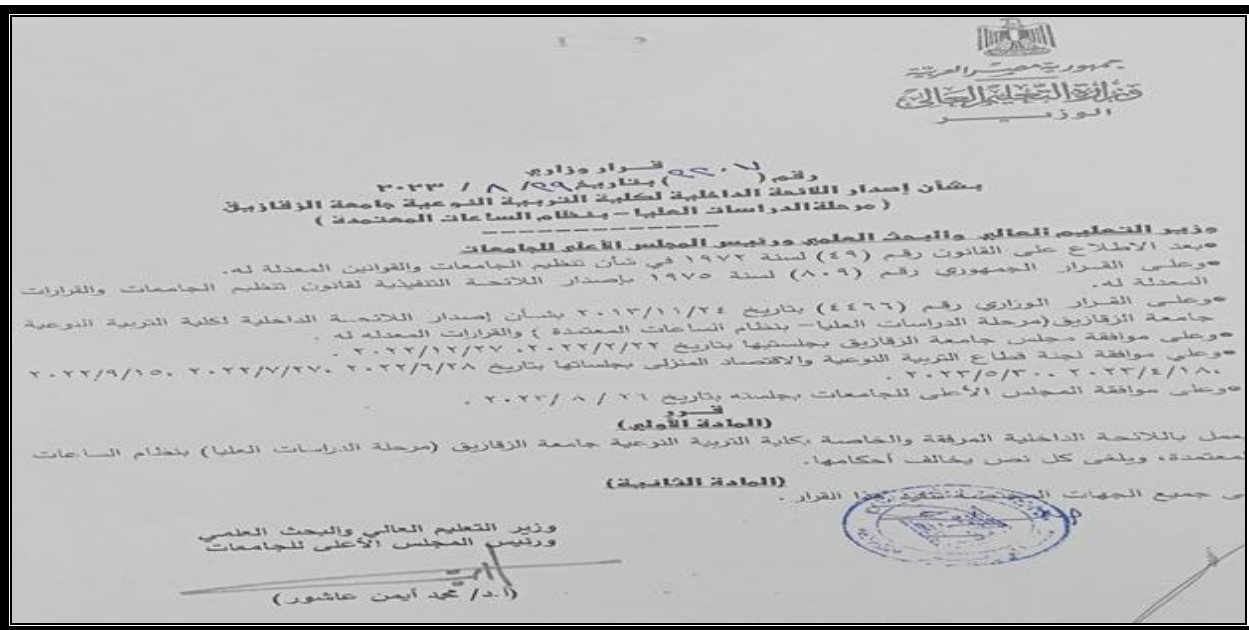 جمهورية مصر العربية
وزارة التعليم العالي
الوزير
قرار وزاري
رقم ( ٢٢٠٧ ) بتاريخ ٢٩ / ٨ / ٢٠٢٣
بشأن إصدار اللائحة الداخلية لكلية التربية النوعية جامعة الزقازيق
( مرحلة الدراسات العليا – بنظام الساعات المعتمدة )
وزير التعليم العالي والبحث العلمي ورئيس المجلس الأعلى للجامعات
بعد الاطلاع على القانون رقم (٤٩) لسنة ١٩٧٢ في شأن تنظيم الجامعات والقوانين المعدلة له.
وعلى القرار الجمهوري رقم (٨٠٩) لسنة ١٩٧٥ بإصدار اللائحة التنفيذية لقانون تنظيم الجامعات والقرارات
المعدلة له.
وعلى القرار الوزاري رقم (٤٤٦٦) بتاريخ ٢٠١٣/١١/٢٤ بشأن إصدار اللائحة الداخلية لكلية التربية النوعية
جامعة الزقازيق (مرحلة الدراسات العليا – بنظام الساعات المعتمدة ) والقرارات المعدله له .
وعلى موافقة مجلس جامعة الزقازيق بجلستيها بتاريخ ٢٠٢٢/٢/٢٢، ٢٠٢٢/١٢/٢٧ .
وعلي موافقة لجنة قطاع التربية النوعية والاقتصاد المنزلى بجلساتها بتاريخ ٢٠٢٢/٦/٢٨، ٢٠٢٢/٧/٢٧، ٢٠٢٢/٩/١٥
،٢٠٢٣/٤/١٨، ٢٠٢٣/٥/٣٠ .
وعلى موافقة المجلس الأعلى للجامعات بجلسته بتاريخ ٢٦ / ٨ / ٢٠٢٣ .
قــرر
(المادة الأولى)
باللائحة الداخلية المرفقة والخاصة بكلية التربية النوعية جامعة الزقازيق (مرحلة الدراسات العليا) بنظام الساعات
لمعتمدة، ويلغى كل نص يخالف أحكامها.
(المادة الثانية)
جميع الجهات المختصة تنفيذ هذا القرار .
وزير التعليم العالي والبحث العلمي
ورئيس المجلس الأعلى للجامعات
(أ.د/ محمد أيمن عاشور)